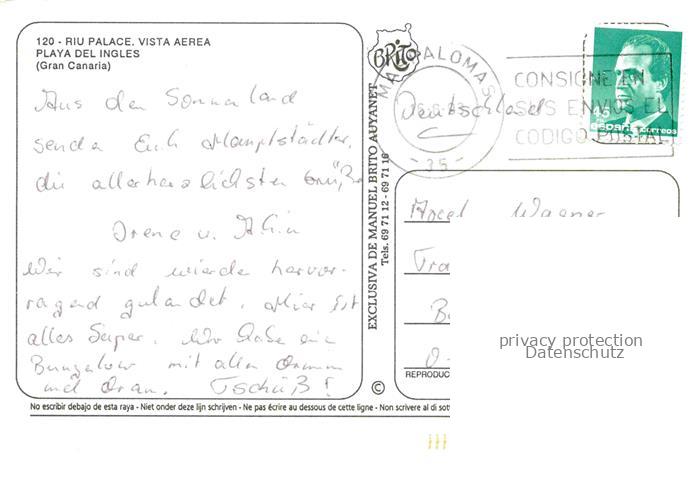 120 - RIU PALACE. VISTA AEREA
PLAYA DEL INGLES
(Gran Canaria)
Aus den Sonnenland
senden Euch Hauptstädter,
die allerherzlichsten Grüße
Irene u.
Wir sind wieder hervor-
ragend gelandet. Hier ist
alles Super. Wir haben ein
Bungalow mit allen Drumm
und Dran. Tschüß!
BRITO
EXCLUSIVA DE MANUEL BRITO AUYANET
Tels. 69 71 12 - 69 71 16
©
MASPALOMAS
- 35 -
CONSIGNE EN
SUS ENVIOS EL
CODIGO POSTAL
45
españa correos
Deutschland
Wagner
REPRODUC
privacy protection
Datenschutz
No escribir debajo de esta raya - Niet onder deze lijn schrijven - Ne pas écrire au dessous de cette ligne - Non scrivere al di sot